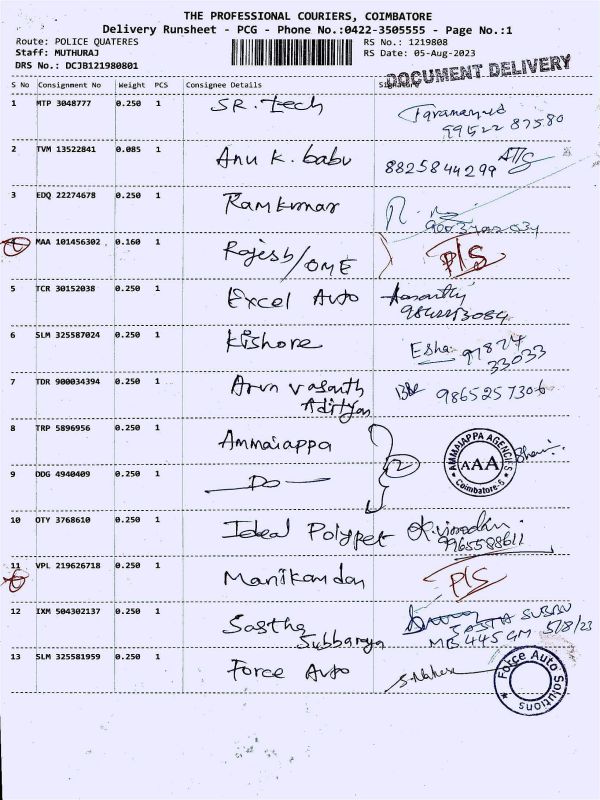 THE PROFESSIONAL COURIERS, COIMBATORE
Delivery Runsheet - PCG - Phone No.:0422-3505555 - Page No.:1
Route: POLICE QUATERES RS No.: 1219808
Staff: MUTHURAJ RS Date: 05-Aug-2023
DRS No.: DCJB121980801
DOCUMENT DELIVERY
S No Consignment No Weight PCS Consignee Details Signature
1 MTP 3048777 0.250 1 SR. tech
99522 87580
2 TVM 13522841 0.085 1 Anu K. babu 8825844299
3 EDQ 22274678 0.250 1 Ramkumar
4 MAA 101456302 0.160 1 Rajesh/OME P/S
5 TCR 30152038 0.250 1 Excel Auto
6 SLM 325587024 0.250 1 Kishore Esha 97827
33033
7 TDR 900034394 0.250 1 Arun Vasanth 9865257306
Adityan
8 TRP 5896956 0.250 1 Ammaiappa 2 AMMAIAPPA AGENCIES AAA Coimbatore-6
9 DDG 4940409 0.250 1 — Do —
10 OTY 3768610 0.250 1 Ideal Polypet
9965588611
11 VPL 219626718 0.250 1 Manikandan P/S
12 IXM 504302137 0.250 1 Sastha SASTA SUBBU
Subbaraya MB 445 GM 5/8/23
13 SLM 325581959 0.250 1 Force Auto Force Auto Solutions